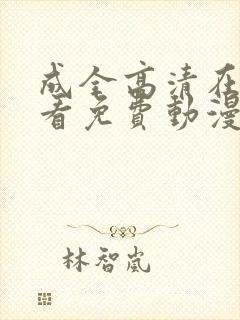 成全高清在
看免費動漫
林智嵐